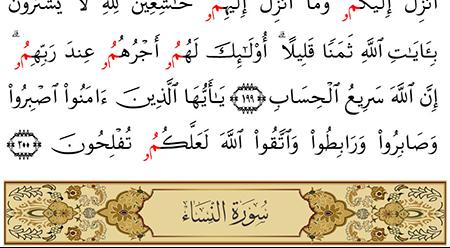 أُنزِلَ إِلَيْكُمُۥ وَمَآ أُنزِلَ إِلَيْهِمُۥ خَٰشِعِينَ لِلَّهِ لَا يَشْتَرُونَ
بِـَٔايَٰتِ ٱللَّهِ ثَمَنٗا قَلِيلًا ۗ أُوْلَٰٓئِكَ لَهُمُۥٓ أَجْرُهُمُۥ عِندَ رَبِّهِمُۥٓ ۗ
إِنَّ ٱللَّهَ سَرِيعُ ٱلْحِسَابِ ١٩٩ يَٰٓأَيُّهَا ٱلَّذِينَ ءَامَنُواْ ٱصْبِرُواْ
وَصَابِرُواْ وَرَابِطُواْ وَٱتَّقُواْ ٱللَّهَ لَعَلَّكُمُۥ تُفْلِحُونَ ٢٠٠
سُورَةُ النِّسَاءِ